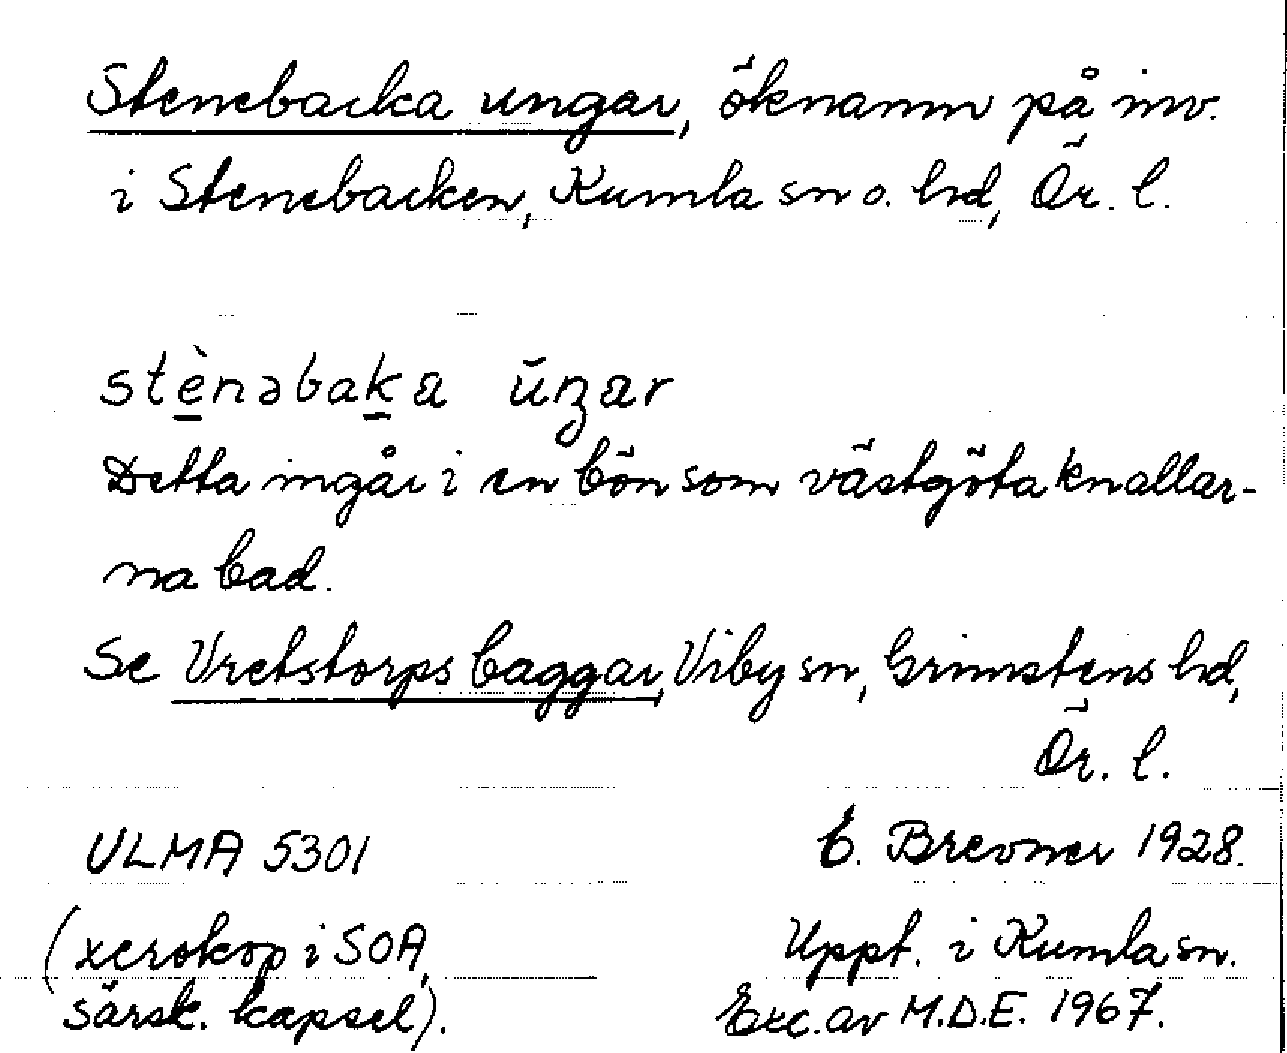 Stenebacka ungar, öknamn på inv.
i Stenebacken, Kumla sn o. hd, Ör. l.
stènəbaka ŭŋar
Detta ingår i en bön som västgöta knallar-
na bad.
Se Vretstorps baggar, Viby sn, Grimstens hd,
Ör. l.
ULMA 5301 E. Brevner 1928.
(xerokop i SOA, Uppt. i Kumla sn.
särsk. kapsel). Exc. av M.D.E. 1967.